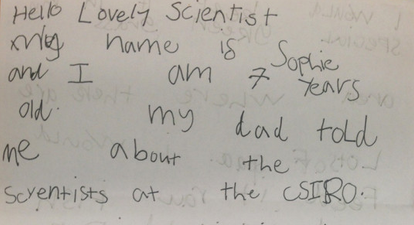 Hello Lovely Scientist
my name is Sophie
and I am 7 years
old. my dad told
me about the
scyentists at the CSIRO.